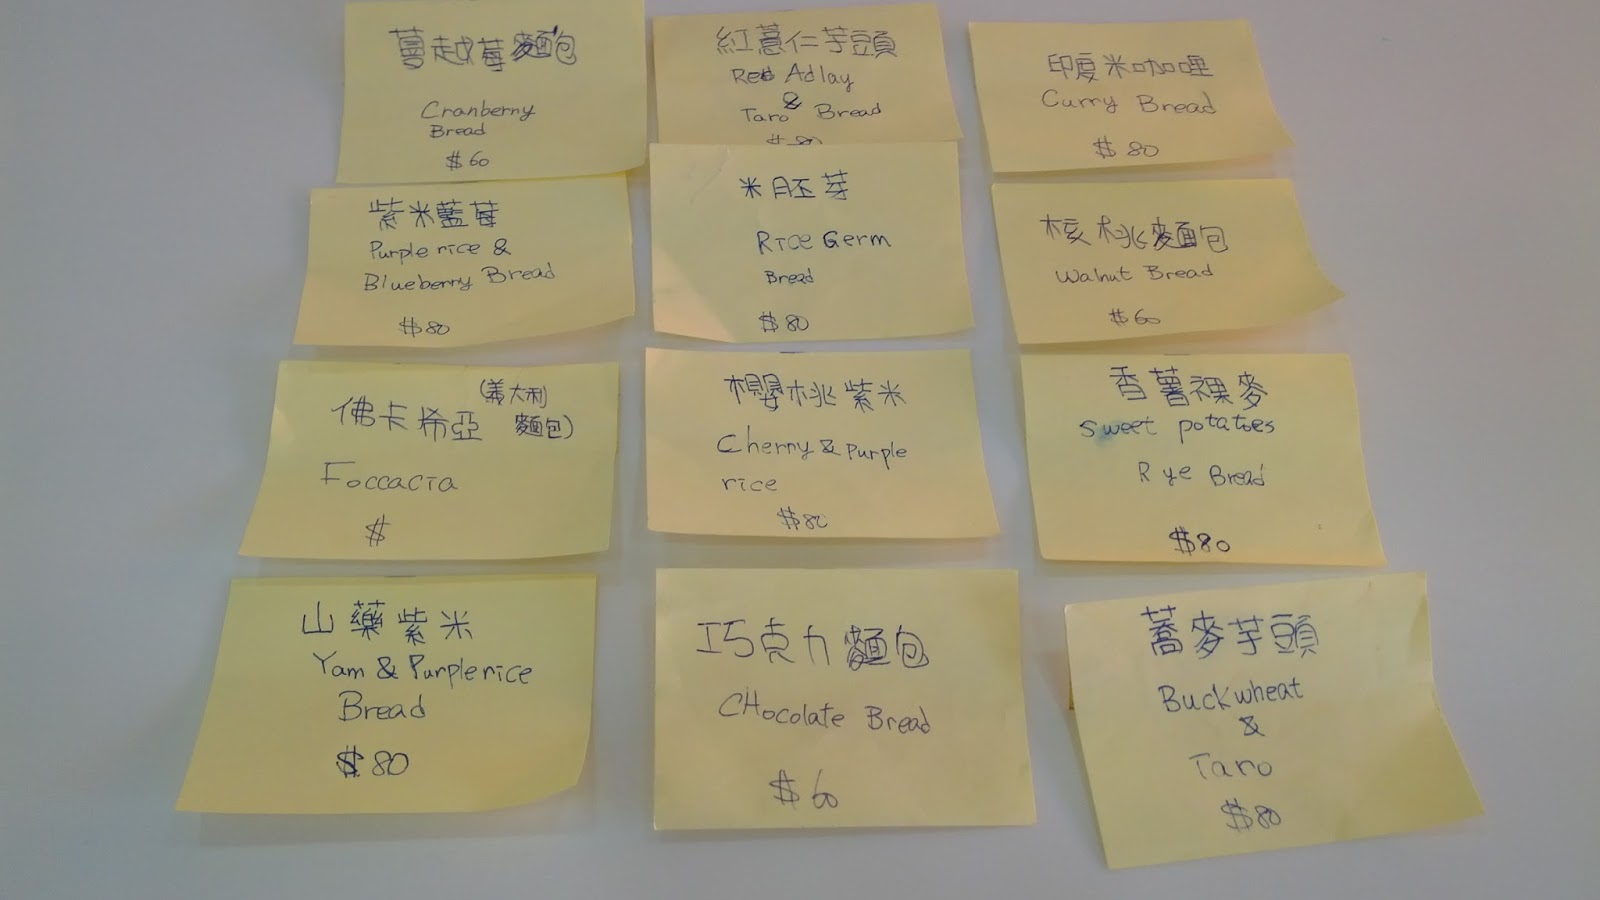 蔓越莓麵包
Cranberry
Bread
$60
紅薏仁芋頭
Red Adlay
&
Taro Bread
$80
印度米咖哩
Curry Bread
$80
紫米藍莓
Purple rice &
Blueberry Bread
$80
米胚芽
Rice Germ
Bread
$80
核桃麵包
Walnut Bread
$60
佛卡希亞 (義大利
麵包)
Foccacia
$
櫻桃紫米
Cherry & Purple
rice
$80
香薯裸麥
Sweet potatoes
Rye Bread
$80
山藥紫米
Yam & Purple rice
Bread
$80
巧克力麵包
CHocolate Bread
$60
蕎麥芋頭
Buckwheat
&
Taro
$80